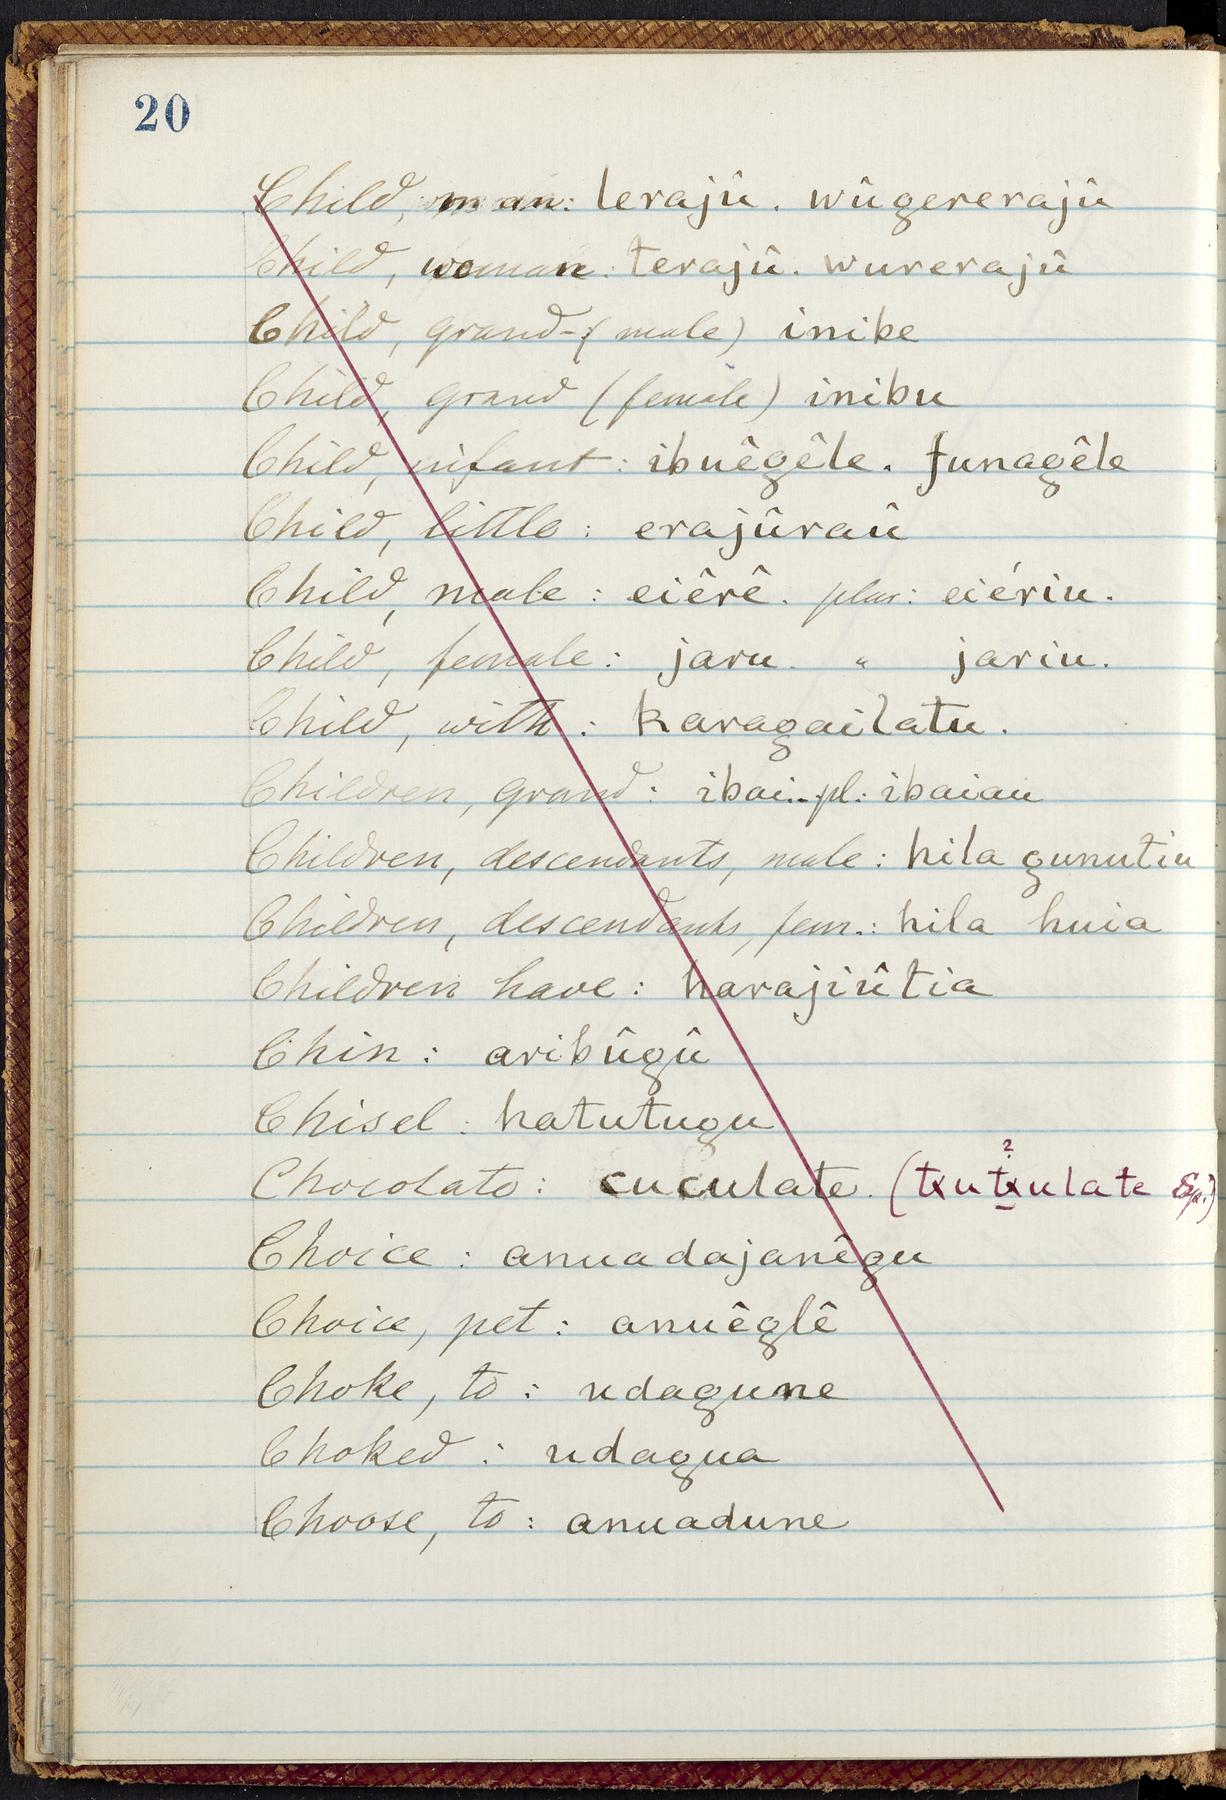 20
Child, man: lerajû. wûgererajû
Child, woman: terajû. wurerajû
Child, grand-(male) inibe
Child, grand (female) inibu
Child, infant: ibuêgêle. funagêle
Child, little: erajûraû
Child, male: eiêrê. plur: eiériu.
Child, female: jaru. " jariu.
Child, with: karagailatu.
Children, grand: ibai. pl: ibaiau
Children, descendants, male: hila gunutiu
Children, descendants, fem.: hila huia
Children have: harajiûtia
Chin: aribûgû
Chisel: hatutugu
Chocolate: cuculate. (txutxulate Sp?)
?
Choice: anuadajanêgu
Choice, pet: anuêglê
Choke, to: udagune
Choked: udagua
Choose, to: anuadune